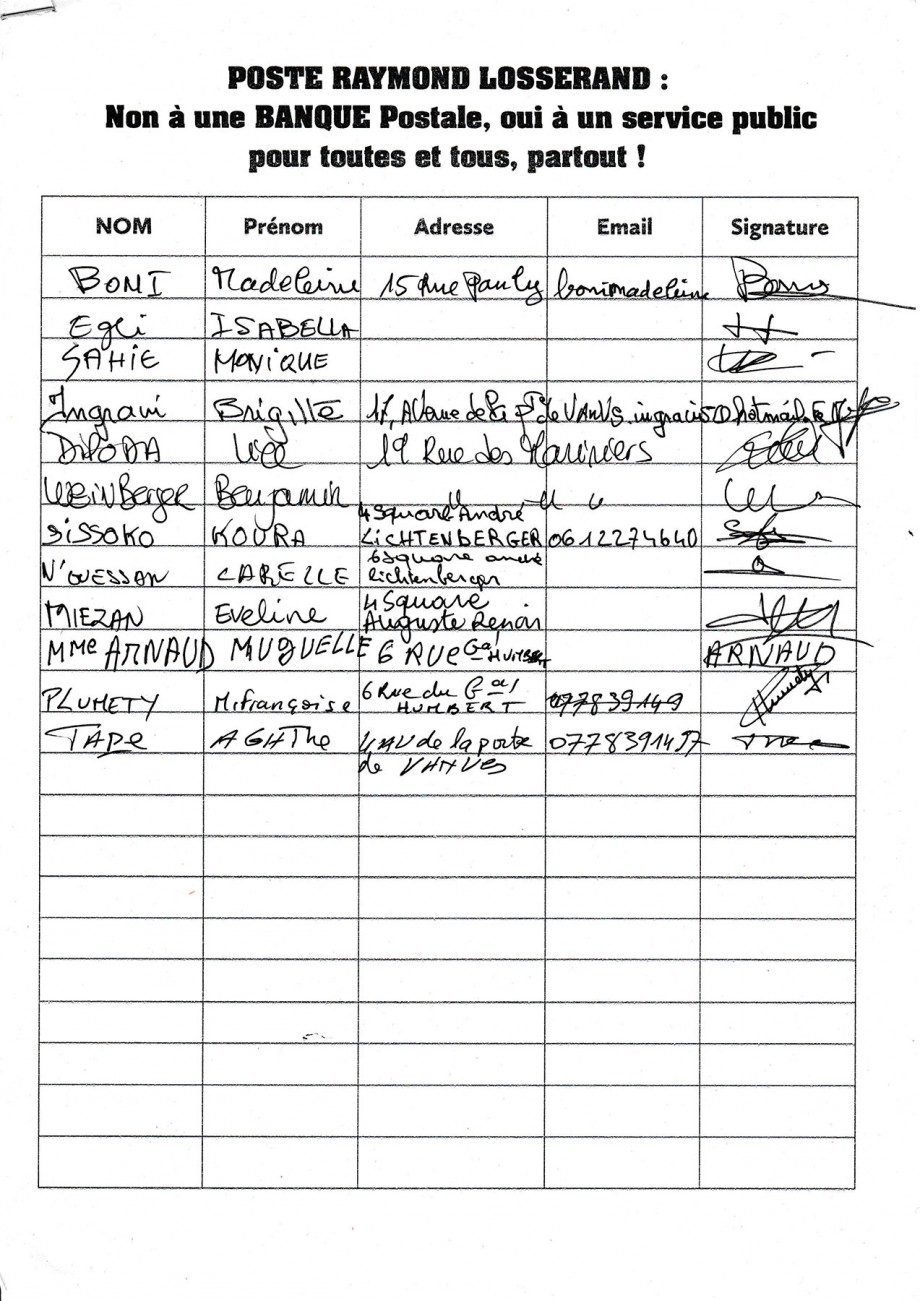 POSTE RAYMOND LOSSERAND :
Non à une BANQUE Postale, oui à un service public
pour toutes et tous, partout !
NOM Prénom Adresse Email Signature
BONI Madeleine 15 Rue Pauly bonimadeleine
Egli ISABELLA
SAHIE MONIQUE
Ingrain Brigitte 17, AVenue de la Pte de VANVS
DIPODA 19 Rue des Mariniers
WEINBerger Benjamin " " "
SISSOKO KOURA 4 Square André
LICHTENBERGER 0612274640
N'GUESSAN CARELLE 6 Square andré
lichtenberger
MIEZAN Eveline 4 Square
Auguste Renoir
Mme ARNAUD MUGUELLE 6 RUE Gal HUMBERT ARNAUD
PLUMETY M.françoise 6 Rue du Gal
HUMBERT 077839149
TAPe AGATHe 4 AV de la porte 0778391457
de VANVes